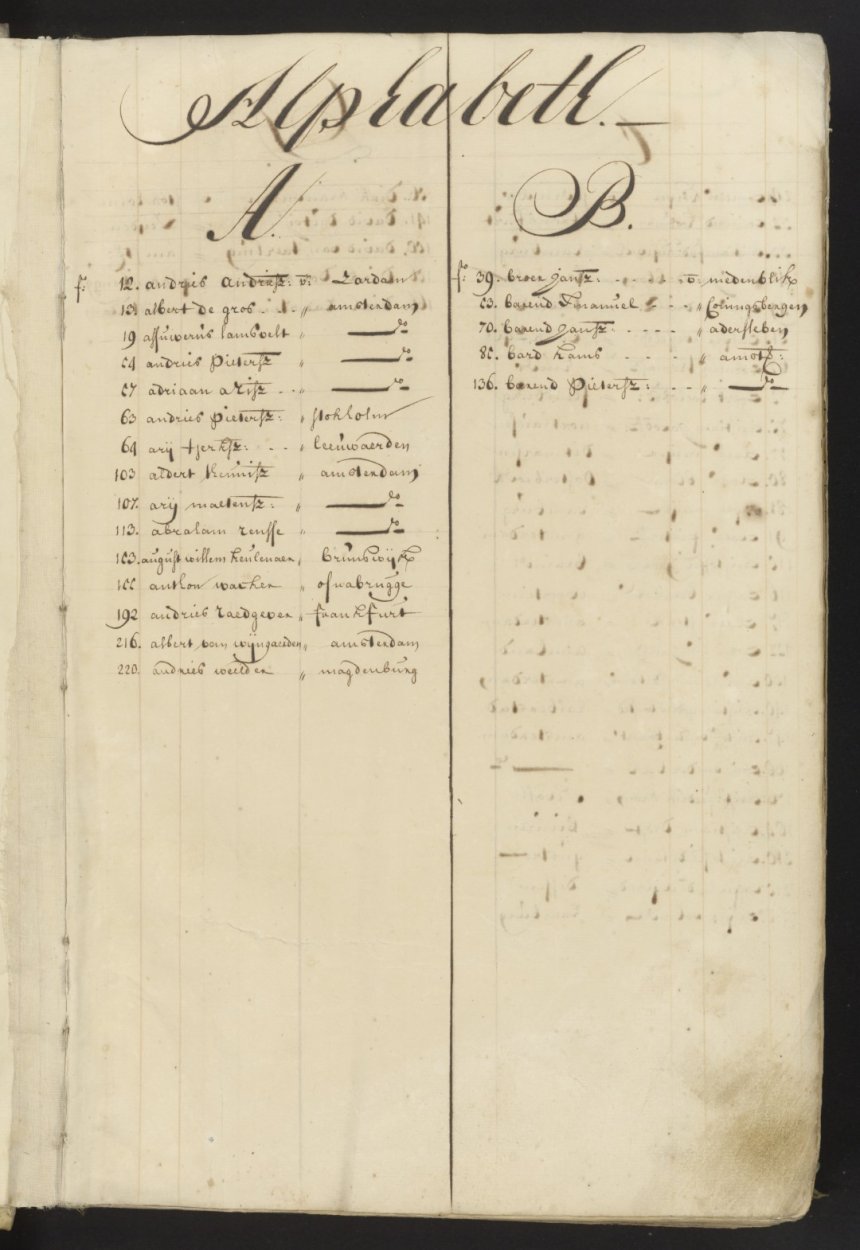 Alphabeth.
A.
f: 12. andries Andriesz: v: Zardam
15. albert de gros - - „ amsterdam
19 assuwerus lamsvelt „ do
54 andries Pietersz „ do
57 adriaan arisz - - „ do
63 andries Pietersz: „ stokholm
64 arij tjerksz: - - „ leeuwaerden
103 aldert theunisz „ amsterdam
107. arij maetensz: „ do
113. abraham rensse „ do
153. august willem keulenaer, brunswijk
155 anthon wacker „ osnabrugge
192 andries raedgever „ frankfurt
216. albert van wijngaerden „ amsterdam
220. andries weelder „ magdenburg
B.
f: 39. broer Jansz: - - - - v: medenblik
53. barend Emanuel - - „
70. barend Jansz: - - - - „ adersleben
85. bard hams - - - - „ amst:
136. barend Pietersz: - - „ do